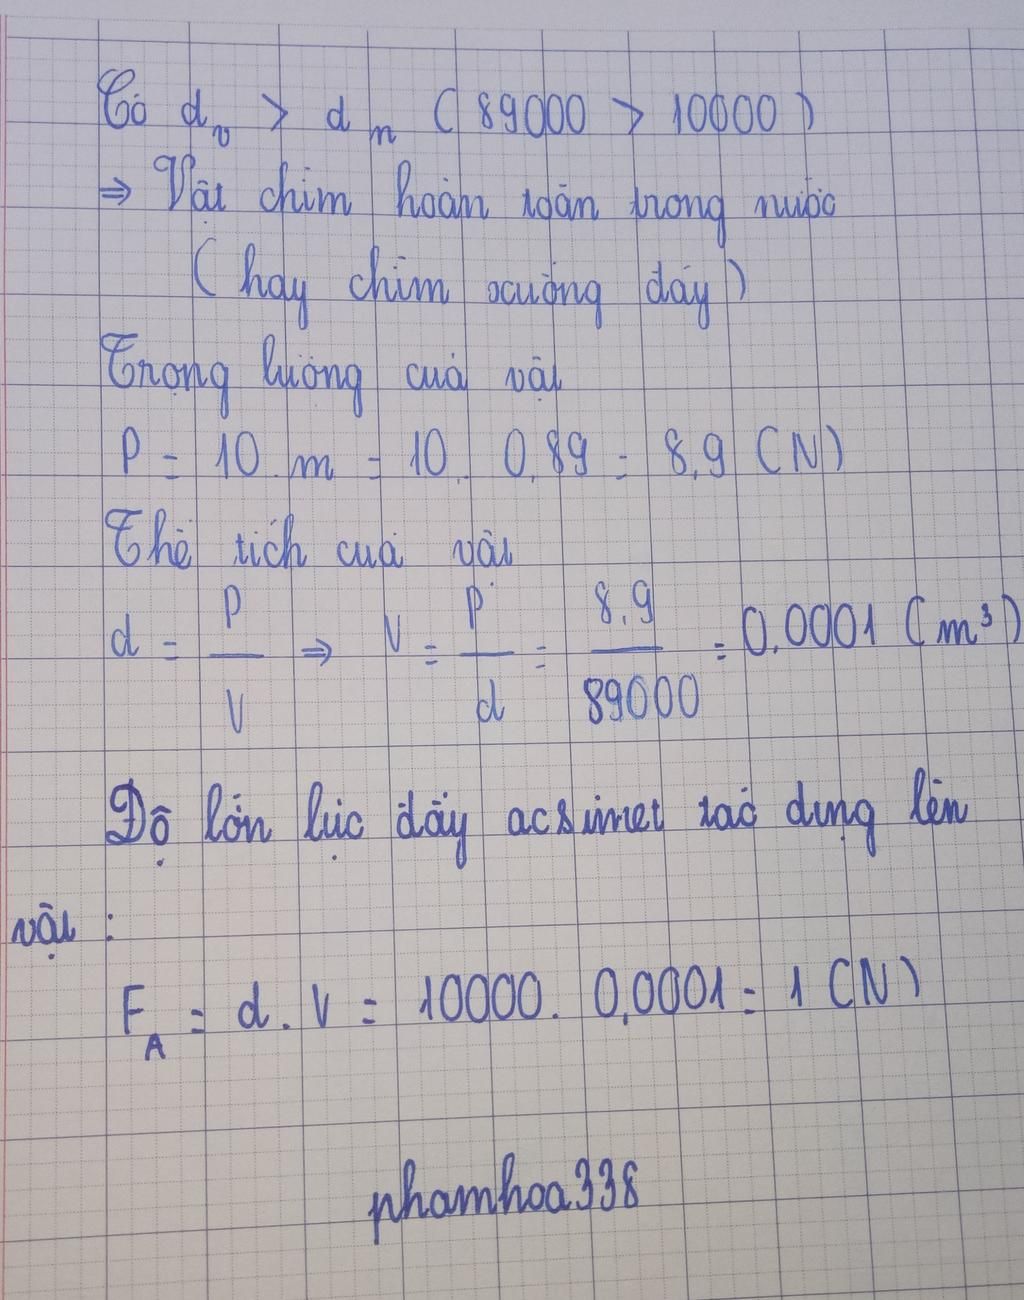 Có d_v > d_n (89000 > 10000)
⇒ Vật chìm hoàn toàn trong nước
(hay chìm xuống đáy)
Trọng lượng của vật
P = 10.m = 10. 0,89 = 8,9 (N)
Thể tích của vật
d = P/V ⇒ V = P/d = 8,9/89000 = 0,0001 (m³)
Độ lớn lực đẩy acsimet tác dụng lên
vật :
F_A = d.V = 10000. 0,0001 = 1 (N)
phamhoa338